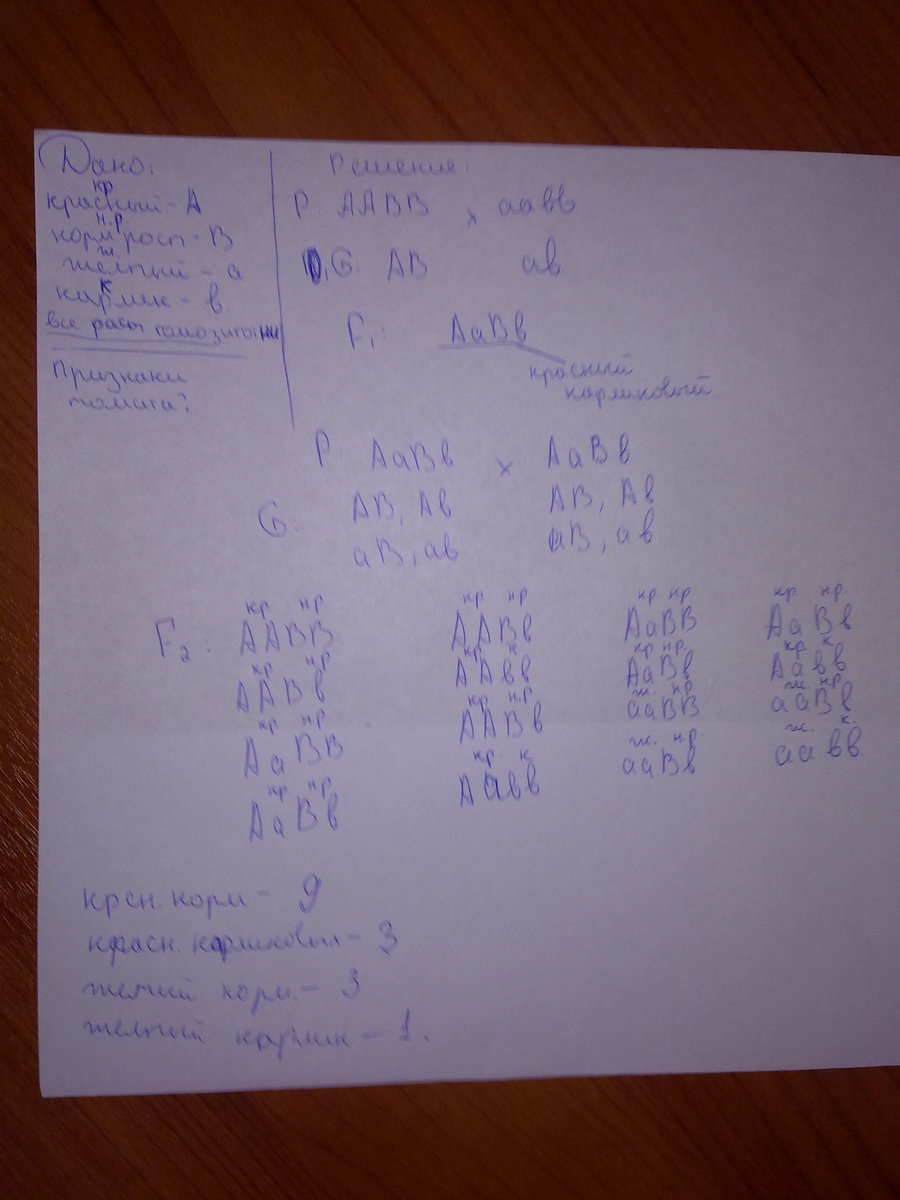 Дано:
кр
красный - А
н.р
норм рост - В
ж.
желтый - а
к
карлик - в.
все раст гомозиготны
Признаки
томата?
Решение:
Р ААВВ х аавв
G: АВ ав
F₁: АаВв
красный
карликовый
Р АаВв х АаВв
G: АВ, Ав АВ, Ав
аВ, ав аВ, ав
кр нр кр нр кр нр кр нр.
F₂: ААВВ ААВв АаВВ АаВв
кр нр кр к кр нр. кр. к.
ААВв ААвв АаВв Аавв
кр нр кр нр ж. нр ж. нр.
АаВВ ААВв ааВВ ааВв
кр нр кр к ж. нр ж. к.
АаВв Аавв ааВв аавв
крсн. норм - 9
красн. карликовых - 3
желтый норм. - 3
желтый карлик - 1.